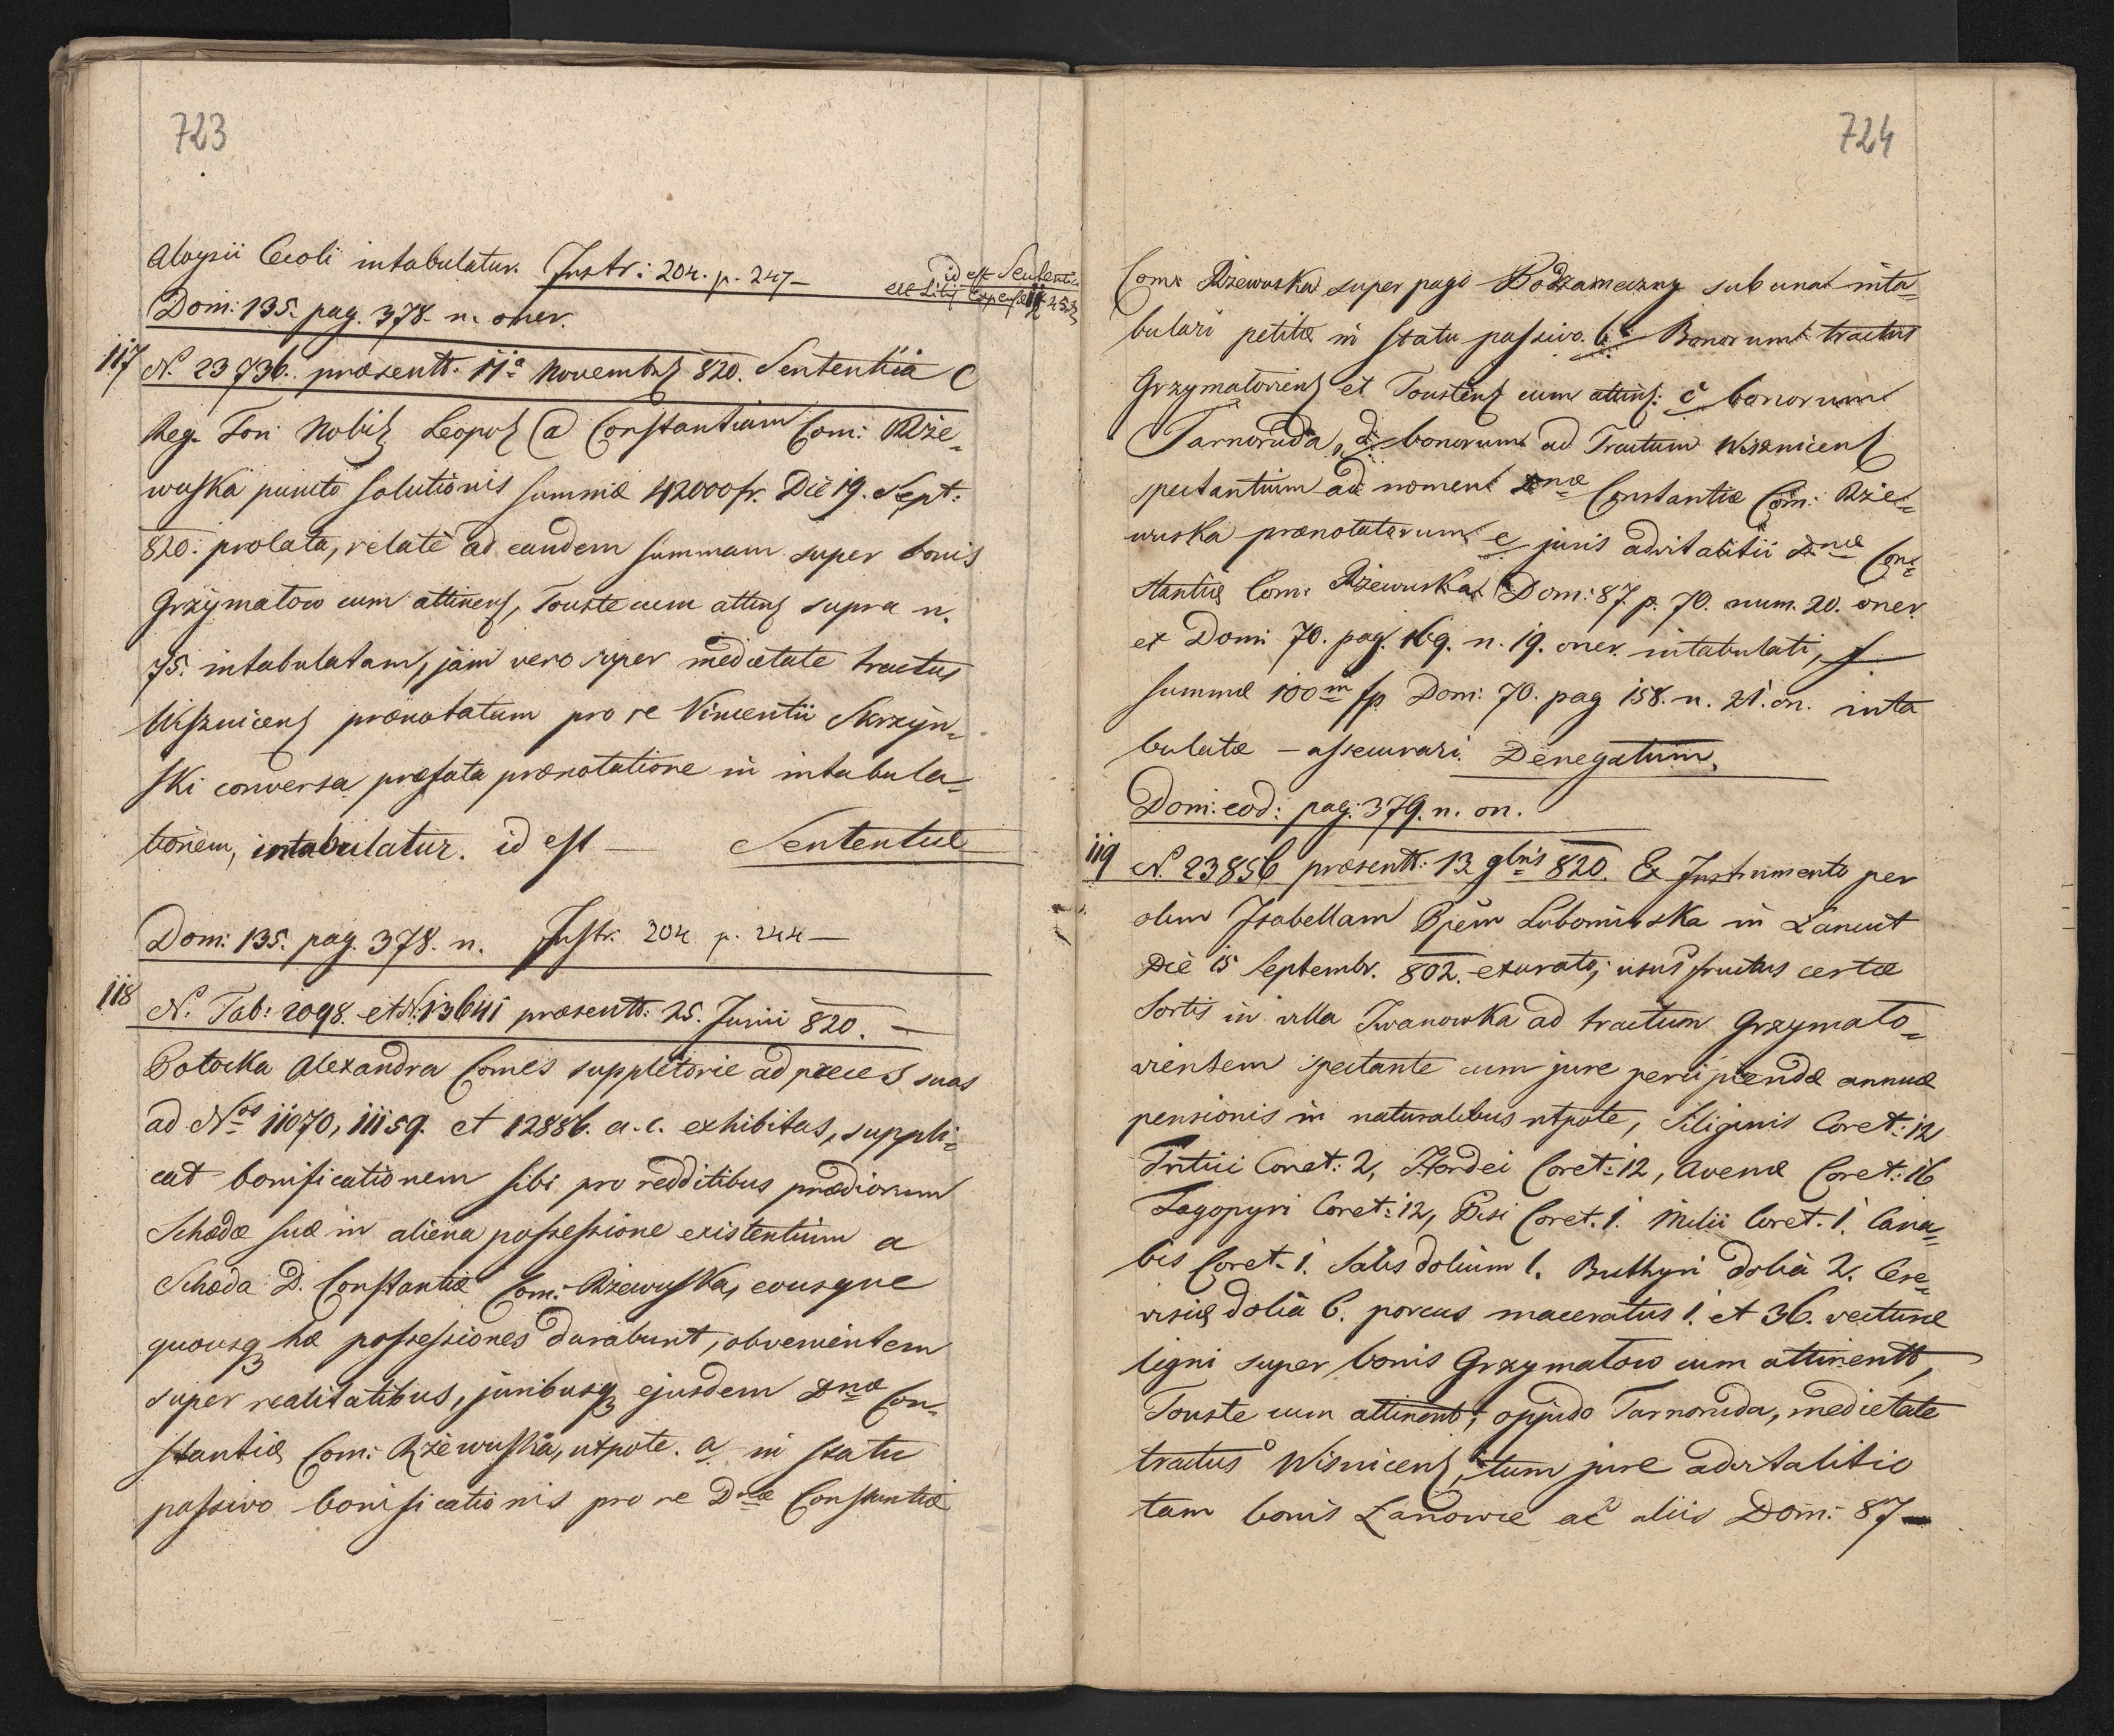 723
Aloysii Ceoli intabulatur. Instr: 204. p. 247 –
id est Sententia
Dom: 135. pag. 378. n. oner.
117 N. 23736. præsentt. 11a Novembris 820. Sententia C
Reg. Fori Nobil Leopol a Constantiam Com: Rże=
wuska puncto solutionis summæ 42000 fr. Die 19. Sept:
820. prolata, relate ad eandem summam super bonis
Grzymałow cum attinens, Touste cum attins supra n.
75. intabulatam, jam vero super medietate tractus
Wisznicens prænotatum pro re Vincentii Skrzyn=
ski conversa præfata prænotatione in intabula=
tionem, intabulatur. id est — Sententiæ
Dom: 135. pag. 378. n. Instr. 204 p. 244 —
118 N. Tab: 2098. et N. 13641 præsentt: 25. Junii 820. —
Potocka Alexandra Comes suppletorie ad preces suas
ad Nos 11070, 11159. et 12886. a. c. exhibitas, suppli=
cat bonificationem sibi pro redditibus prædiorum
Schedæ suæ in aliena possessione existentium a
Scheda D. Constantiæ Com: Rżewuska, eousque
quousq hæ possessiones durabunt, obvenientem
super realitatibus, juribusq ejusdem Dnæ Con=
stantiæ Com: Rżewuska, utpote. a in statu
passivo bonificationis pro re Dnæ Constantiæ
724
Com: Rżewuska super pago Podzameczny sub una inta=
bulari petitæ in statu passivo. b Bonorum tractus
Grzymałoviens et Toustens cum attins: c bonorum
Tarnoruda, d bonorum ad Tractum Wisznicens
spectantium ad nomen Dnæ Constantiæ Com: Rże=
wuska prænotatorum e juris advitalitii Dnæ Con=
stantiæ Com: Rżewuska Dom: 87. p. 70. num. 20. oner.
et Dom: 70. pag. 169. n. 19. oner. intabulati, f
summæ 100m fp. Dom: 70. pag 158. n. 21. on. inta
bulatæ – assecurari. Denegatum.
Dom: eod: pag: 379. n. on.
119 N. 23856 præsentt: 13 9bris 820. Ex Instrumento per
olim Isabellam Ppem Lubomirska in Łancut
Die 15 Septembr. 802. exarato, usus fructus certæ
Sortis in villa Iwanowka ad tractum Grzymało=
viensem spectante cum jure percipiendæ annuæ
pensionis in naturalibus utpote, Siliginis Coret: 12
Tritici Coret: 2, Hordei Coret: 12, Avenæ Coret: 16
Fagopyri Coret: 12, Pisi Coret. 1. Milii Coret. 1. Cana=
bis Coret. 1. Salis dolium 1. Buthyri dolia 2. Cere=
visiæ dolia 6. porcus maceratus 1. et 36. vecturæ
ligni super bonis Grzymałow cum attinentt,
Touste cum attinent, oppido Tarnoruda, medietate
tractus Wisnicens, tum jure advitalitio
tam bonis Łanowce ac aliis Dom: 87 —